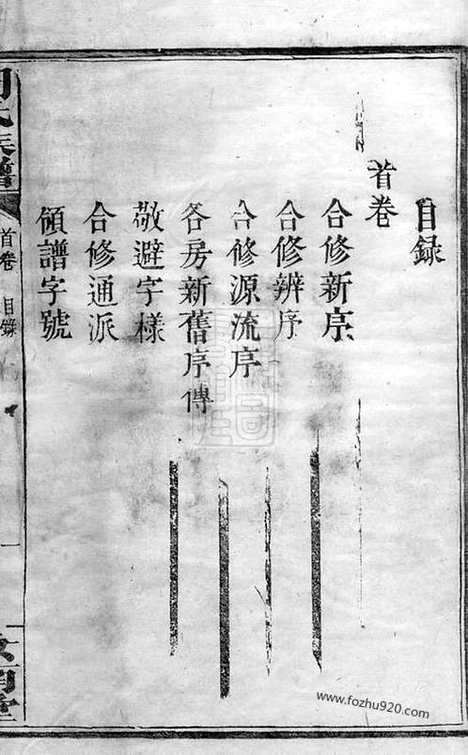 目録
首卷
合修新序
合修辨序
合修源流序
各房新舊序傳
敬避字樣
合修通派
領譜字號
首卷 目錄
一
www.fozhu920.com